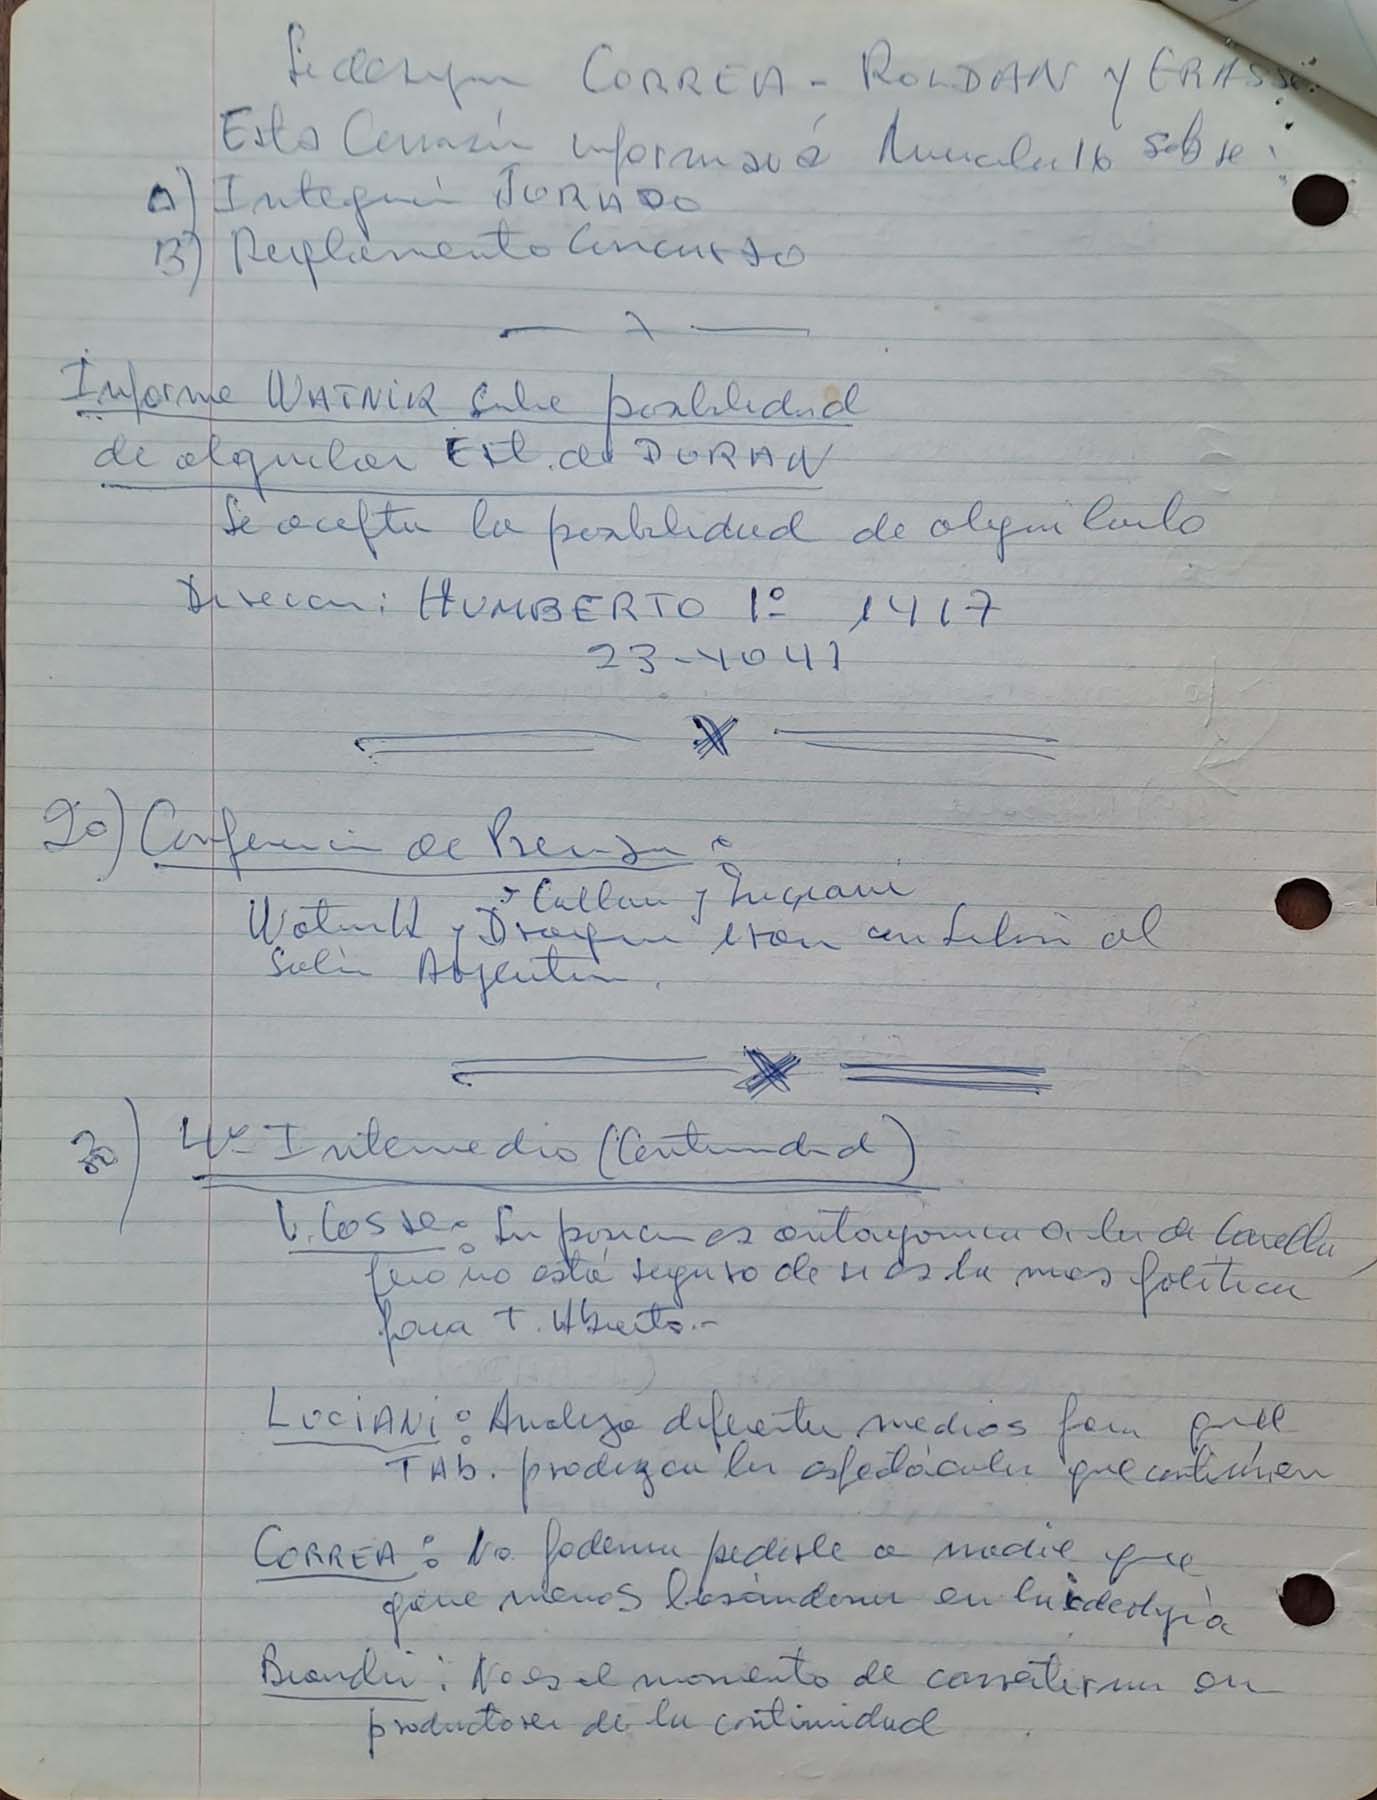 Se design CORREA - ROLDAN Y GRASSO
Esta Comisión informará Miercoles 16 sobre:
A) Integración JURADO
B) Reglamento Concurso
Informe WATNIK sobre posibilidad
de alquilar Est. de DURAN
Se acepta la posibilidad de alquilarlo
Direccion: HUMBERTO 1º 1417
23-4041
2o) Conferencia de Prensa:
Callau y
Watnik y Dragun iran al
Salón Argentino.
3o) 4º Intermedio (Continuidad)
V. Cosse: Su posicion es antagonica a la de Carella,
pero no está seguro de si es la mas politica
para T. Abierto.-
LUCIANI: Analiza diferentes medios para que
TAb. produzca los espectáculos que continúen
CORREA: No podemos pedirle a nadie que
gane menos basándonos en la ideología
Brandu: No es el momento de convertirnos en
productores de la continuidad